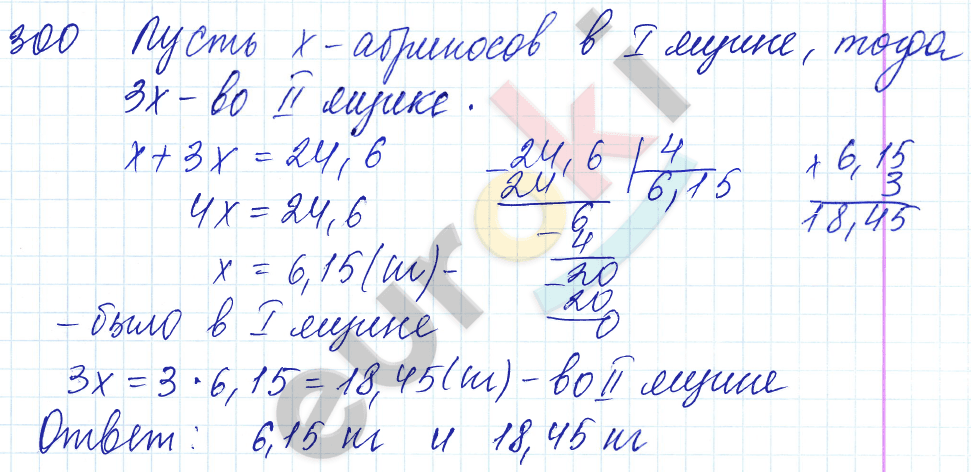 300 Пусть x - абрикосов в I ящике, тогда
3x - во II ящике.
x + 3x = 24,6
4x = 24,6
x = 6,15 (кг) -
- было в I ящике
24,6 | 4
24 6,15
6
4
20
20
0
x 6,15
3
18,45
3x = 3 · 6,15 = 18,45 (кг) - во II ящике
Ответ: 6,15 кг и 18,45 кг
euroki